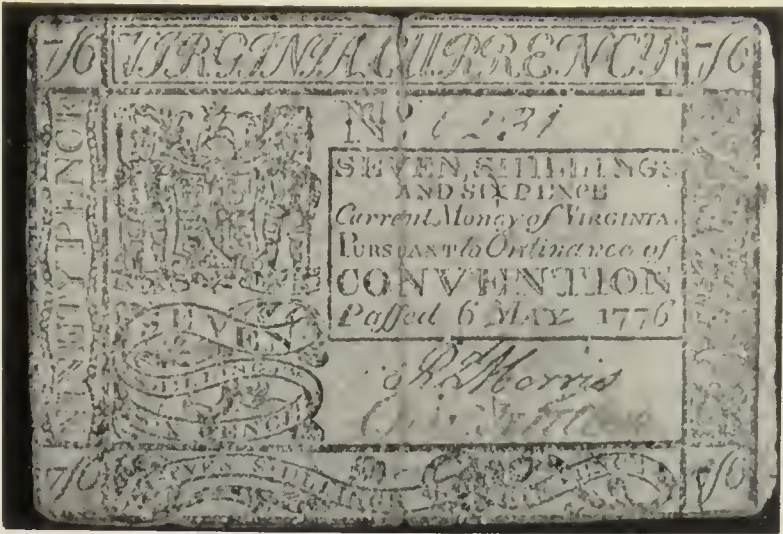 7/6 VIRGINIA CURRENCY 7/6
NINETY PENCE
No
SEVEN SHILLINGS
AND SIXPENCE
Current Money of VIRGINIA.
PURSUANT to Ordinance of
CONVENTION
Paſſed 6 MAY 1776
Morris
SEVEN
SHILLINGS
PENCE
7/6 SEVEN SHILLINGS 7/6